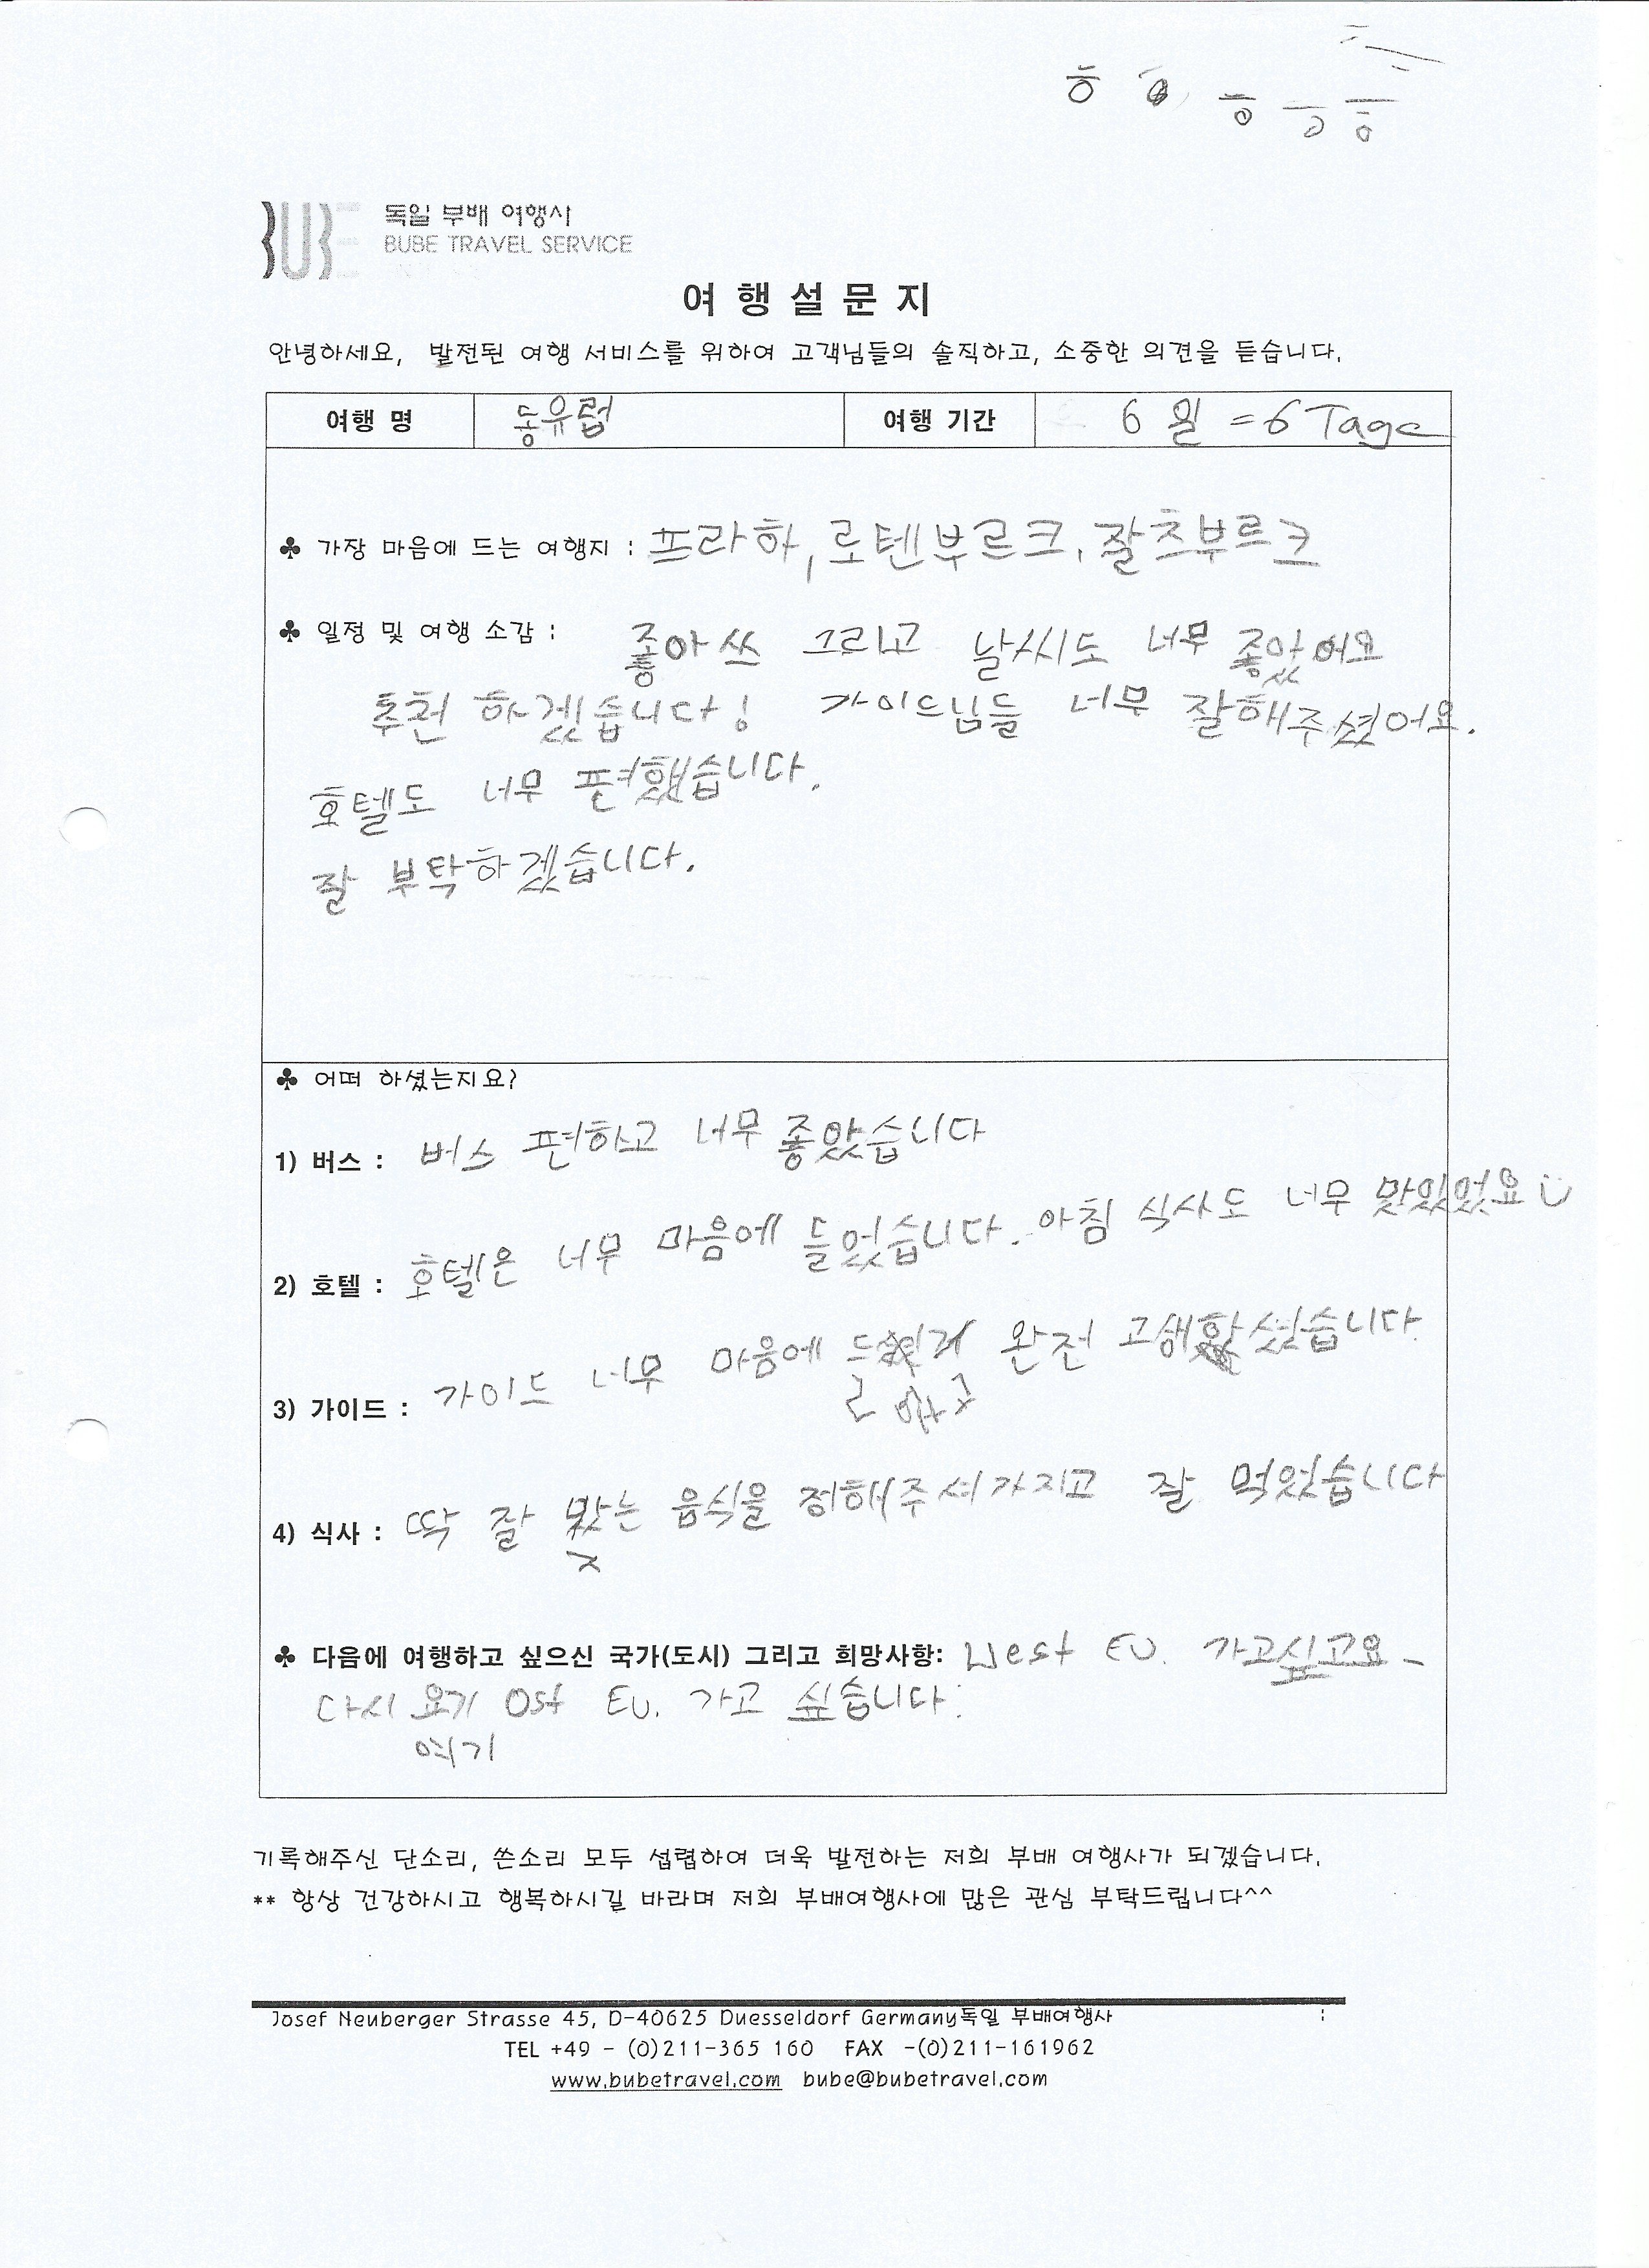 독일 부배 여행사
BUBE TRAVEL SERVICE
여 행 설 문 지
안녕하세요, 발전된 여행 서비스를 위하여 고객님들의 솔직하고, 소중한 의견을 듣습니다.
여행 명 동유럽 여행 기간 6 일 = 6 Tage
♣ 가장 마음에 드는 여행지 : 프라하, 로텐부르크, 잘츠부르크
♣ 일정 및 여행 소감 : 좋아쓰 그리고 날씨도 너무 좋았어요
추천 하겠습니다! 가이드님들 너무 잘해주셨어요.
호텔도 너무 편했습니다.
잘 부탁하겠습니다.
♣ 어떠 하셨는지요?
1) 버스 : 버스 편하고 너무 좋았습니다
2) 호텔 : 호텔은 너무 마음에 들었습니다. 아침 식사도 너무 맛있었요
3) 가이드 : 가이드 너무 마음에 완전 고생하셨습니다.
4) 식사 : 딱 잘 맞는 음식을 정해주셔가지고 잘 먹었습니다
♣ 다음에 여행하고 싶으신 국가(도시) 그리고 희망사항: West EU. 가고싶고요
다시 요기 Ost EU. 가고 싶습니다.
여기
기록해주신 단소리, 쓴소리 모두 섭렵하여 더욱 발전하는 저희 부배 여행사가 되겠습니다.
** 항상 건강하시고 행복하시길 바라며 저희 부배여행사에 많은 관심 부탁드립니다^^
Josef Neuberger Strasse 45, D-40625 Duesseldorf Germany독일 부배여행사 :
TEL +49 - (0)211-365 160 FAX -(0)211-161962
www.bubetravel.com bube@bubetravel.com